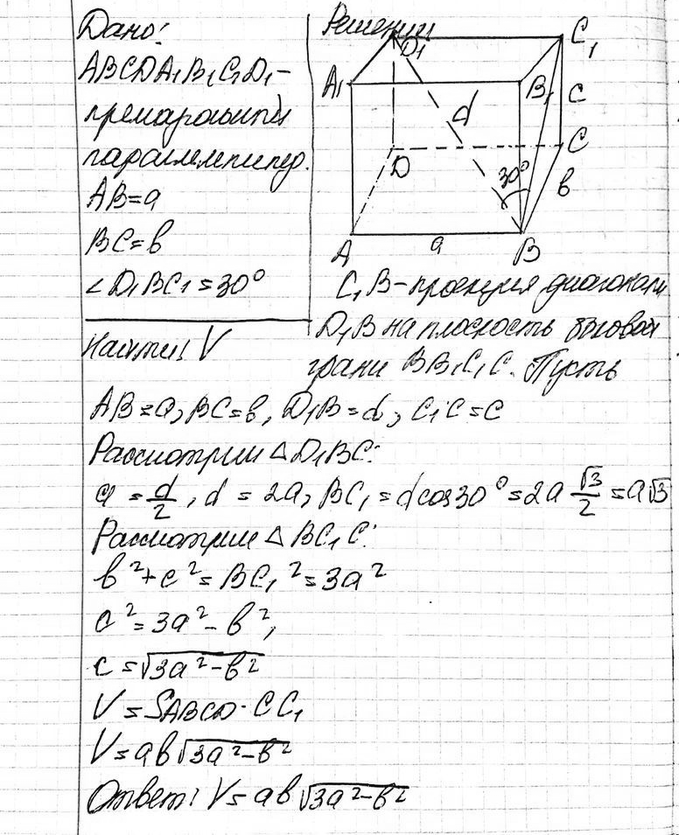 Дано:
ABCDA₁B₁C₁D₁ –
прямоугольный
параллелепипед.
AB=a
BC=b
∠D₁BC₁=30°
Найти: V
Решение
D₁
C₁
A₁
B₁
c
d
D
C
30°
b
A
a
B
C₁B – проекция диагонали
D₁B на плоскость боковой
грани BB₁C₁C. Пусть
AB=a, BC=b, D₁B=d, C₁C=c
Рассмотрим △D₁BC:
a = d/2, d = 2a, BC₁ = d cos30° = 2a √3/2 = a√3
Рассмотрим △BC₁C:
b²+c² = BC₁² = 3a²
c² = 3a² – b²,
c = √3a²–b²
V = SABCD · CC₁
V = ab√3a²–b²
Ответ: V = ab√3a²–b²